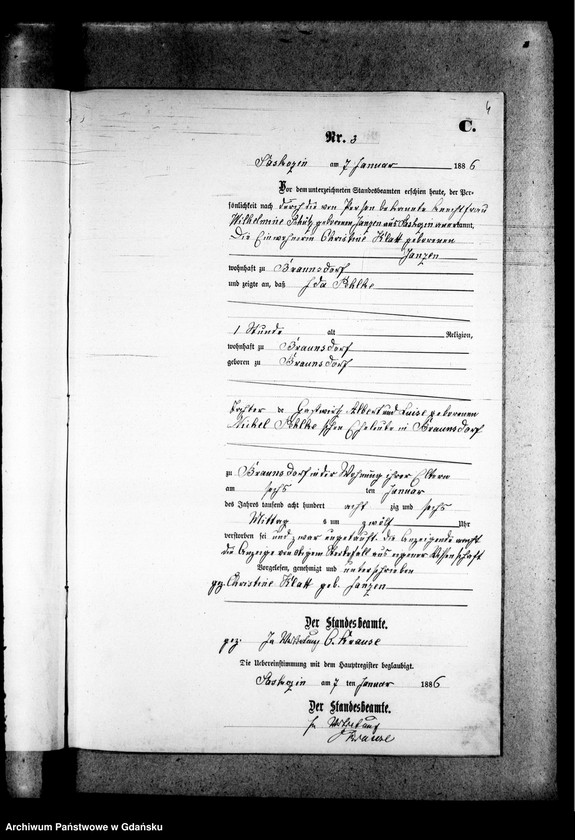 4
C.
Nr. 3
Saskozin am 7 Januar 1886
Vor dem unterzeichneten Standesbeamten erschien heute, der Per-
sönlichkeit nach durch die von Person bekannte
Wilhelmine geborenen Janzen aus Saskozin anerkannt,
Die Einwohnerin Christine Klatt geborenen
Janzen
wohnhaft zu Braunsdorf
und zeigte an, daß Ida
1 Stunde alt Religion,
wohnhaft zu Braunsdorf
geboren zu Braunsdorf
Tochter der Gastwirth Albert und Luise geborenen
Nickel schen Eheleute in Braunsdorf
zu Braunsdorf in der Wohnung ihrer Eltern
am sechs ten Januar
des Jahres tausend acht hundert acht zig und sechs
Mittag s um zwölf Uhr
verstorben sei und zwar ungetauft. die Anzeigende macht
die Anzeige von diesem Sterbefall aus eigener Wissenschaft
Vorgelesen, genehmigt und unterschrieben
gez. Christine Klatt geb. Janzen
Der Standesbeamte.
gez. In Vertretung Krause
Die Uebereinstimmung mit dem Hauptregister beglaubigt.
Saskozin am 7 ten Januar 1886
Der Standesbeamte.
In Vertretung
Krause
Archiwum Państwowe w Gdańsku